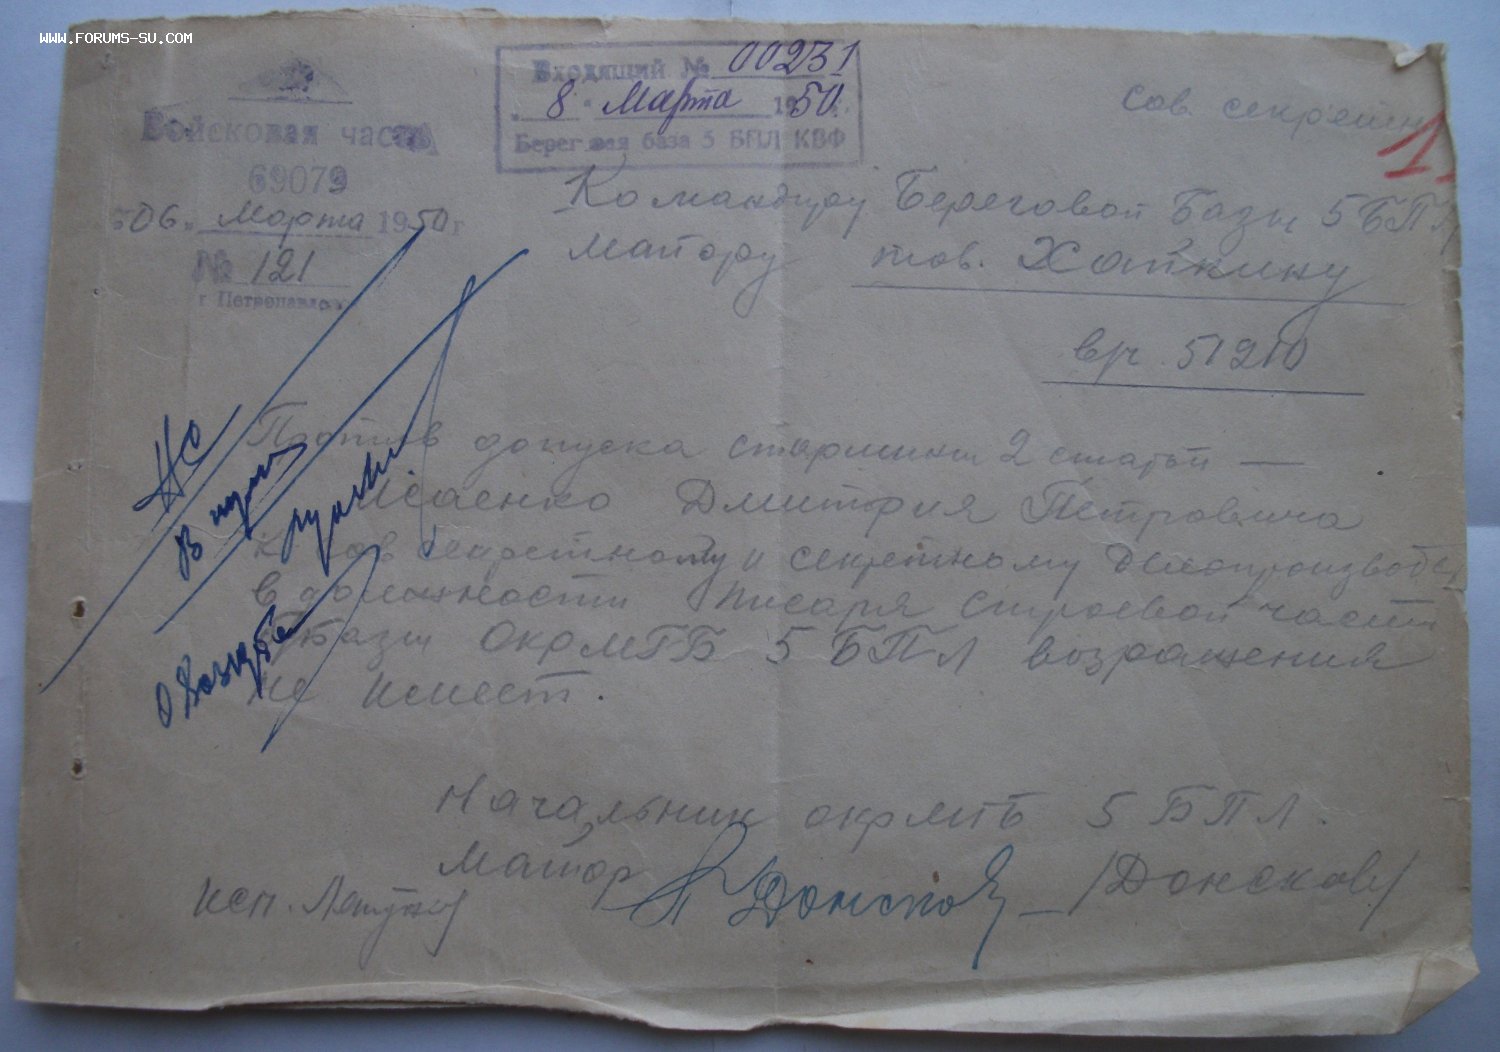 WWW.FORUMS-SU.COM
Войсковая часть
69079
"06" Марта 1950 г
№ 121
г. Петропавловск
Входящий № 00231
"8" Марта 1950 г.
Береговая база 5 БПЛ КВФ
Сов. секретн
1
Командиру Береговой Базы 5 БПЛ
майору тов. Хайкину
в/ч. 51210
Против допуска старшины 2 статьи —
Исаенко Дмитрия Петровича
к сов секретному и секретному делопроизвод
в должности писаря строевой части
Базы ОКРМГБ 5 БПЛ возражения
не имеет.
НС
В
Начальник окрмгб 5 БПЛ.
Майор Донсков /Донсков/
исп.